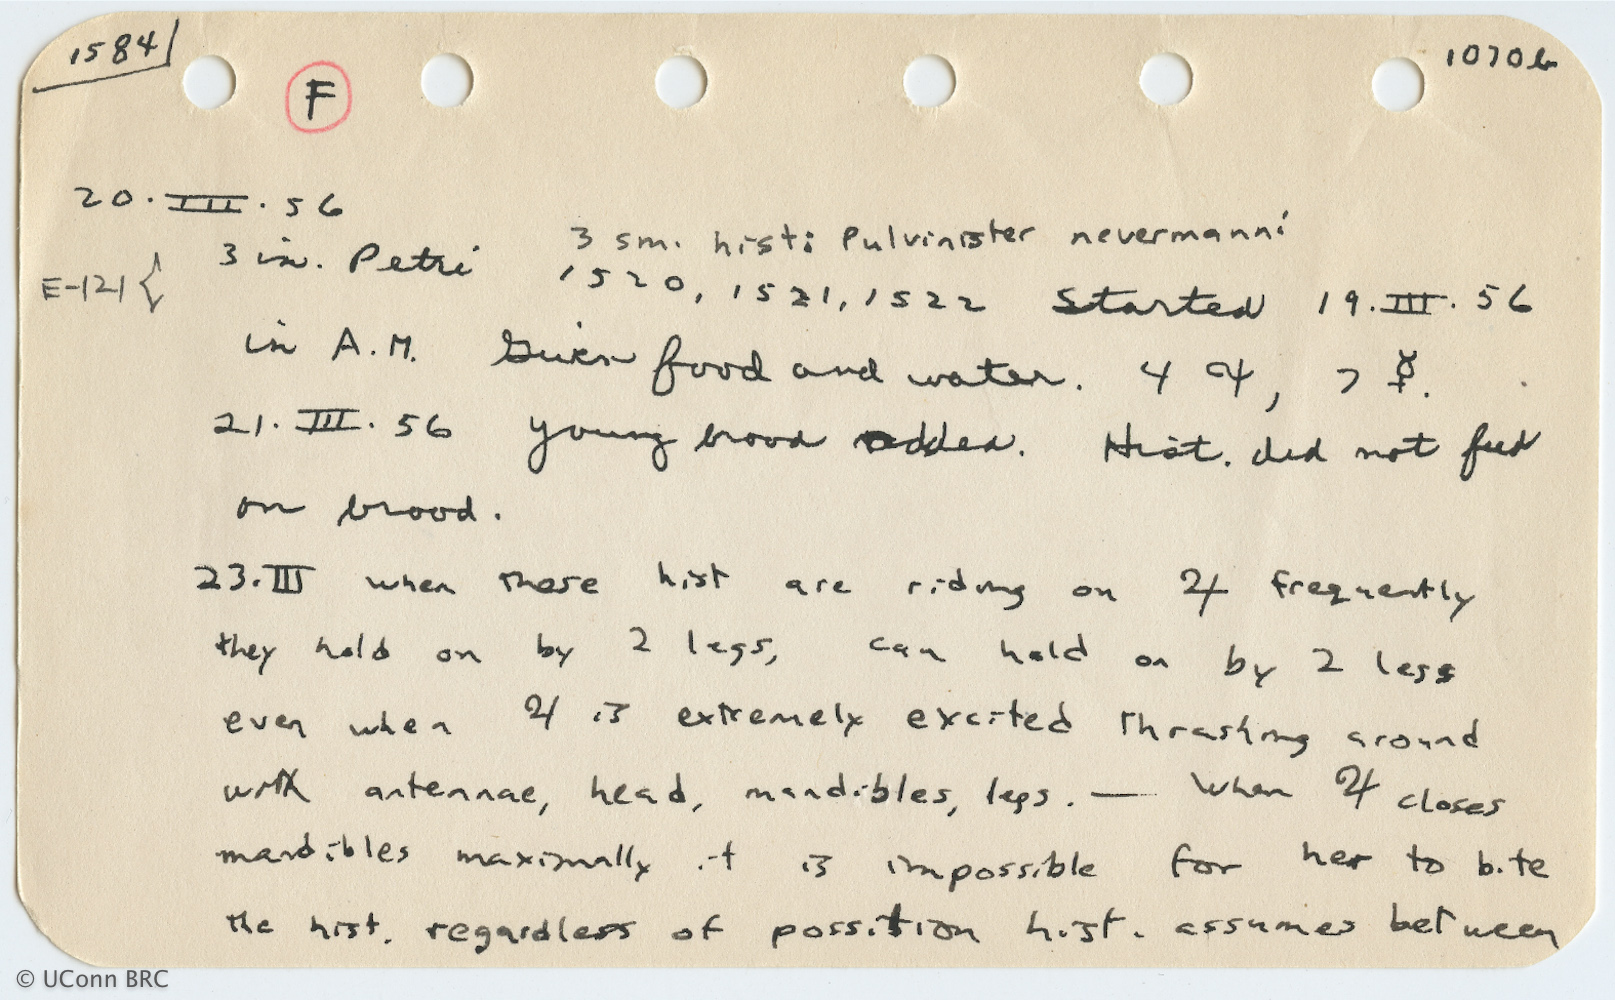 1584
F
1070b
20.III.56
3 in. Petri 3 sm. hist: Pulvinister nevermanni
E-121 { 1520, 1521, 1522 Started 19.III.56
in A.M. Given food and water. 4 ♃, 7 ☿.
21.III.56 young brood added. Hist. did not feed
on brood.
23.III when these hist are riding on ♃ frequently
they hold on by 2 legs, can hold on by 2 legs
even when ♃ is extremely excited thrashing around
with antennae, head, mandibles, legs. — When ♃ closes
mandibles maximally it is impossible for her to bite
the hist. regardless of possition hist. assumes between
© UConn BRC